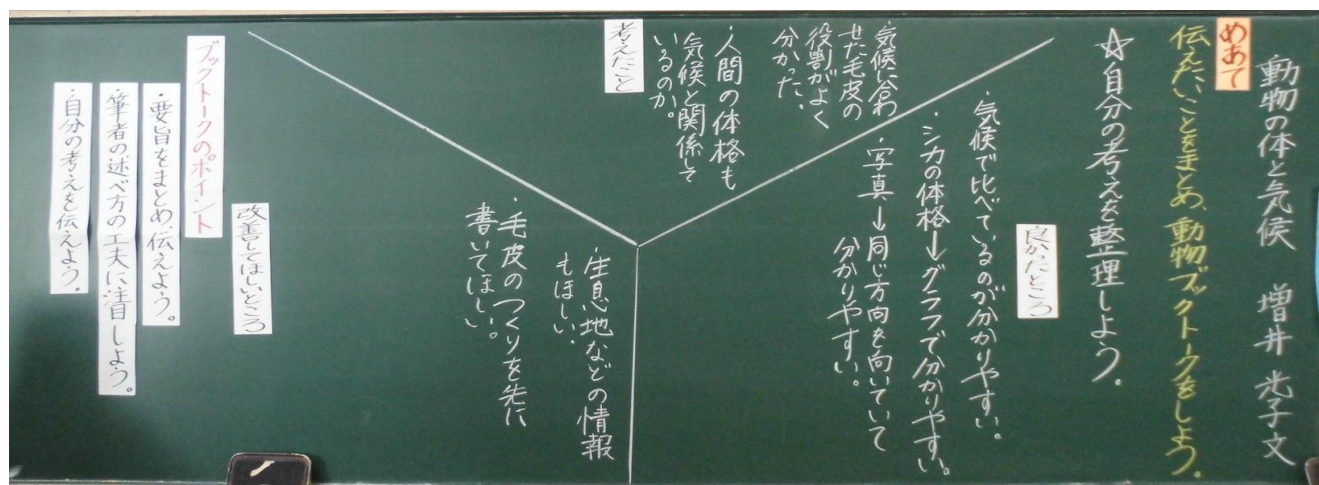 動物の体と気候　増井 光子文
めあて
伝えたいことをまとめ、動物ブックトークをしよう。
☆自分の考えを整理しよう。
良かたところ
・気候で比べているのが分かりやすい。
・シカの体格→グラフで分かりやすい。
・写真→同じ方向を向いていて
分かりやすい。
考えたこと
気候に合わ
せた毛皮の
役割がよく
分かった。
・人間の体格も
気候と関係して
いるのか。
改善してほしいところ
・生息地などの情報
もほしい、
・毛皮のつくりを先に
書いてほしい。
ブックトークのポイント
・要旨をまとめ、伝えよう。
・筆者の述べ方の工夫に注目しよう。
・自分の考えを伝えよう。